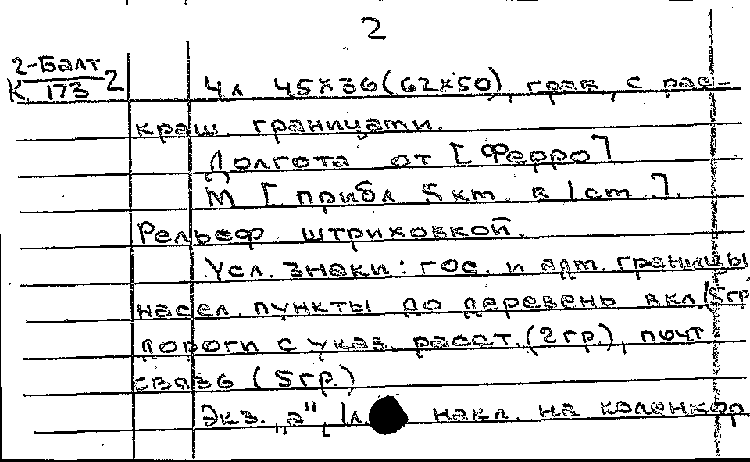 2
2-Балт
К 173 2
4л 45×36(62×50), грав., с рас-
краш. границами.
Долгота от [Ферро]
М [прибл 5 км. в 1 см.].
Рельеф штриховкой.
Усл. знаки: гос. и адм. границы
насел. пункты до деревень вкл. (5гр
дороги с указ. расст. (2 гр.), почт
связь (5гр.)
Экз. „а", 1л. накл. на коленкор